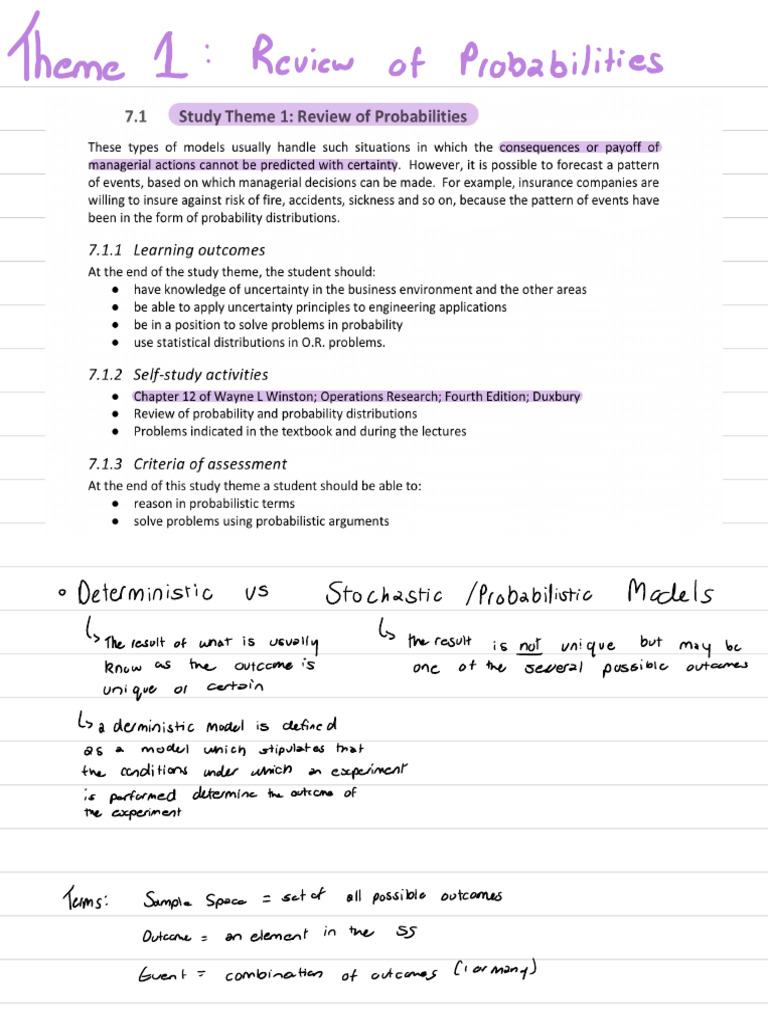 Theme 1: Review of Probabilities
7.1 Study Theme 1: Review of Probabilities
These types of models usually handle such situations in which the consequences or payoff of
managerial actions cannot be predicted with certainty. However, it is possible to forecast a pattern
of events, based on which managerial decisions can be made. For example, insurance companies are
willing to insure against risk of fire, accidents, sickness and so on, because the pattern of events have
been in the form of probability distributions.
7.1.1 Learning outcomes
At the end of the study theme, the student should:
● have knowledge of uncertainty in the business environment and the other areas
● be able to apply uncertainty principles to engineering applications
● be in a position to solve problems in probability
● use statistical distributions in O.R. problems.
7.1.2 Self-study activities
● Chapter 12 of Wayne L Winston; Operations Research; Fourth Edition; Duxbury
● Review of probability and probability distributions
● Problems indicated in the textbook and during the lectures
7.1.3 Criteria of assessment
At the end of this study theme a student should be able to:
● reason in probabilistic terms
● solve problems using probabilistic arguments
• Deterministic vs Stochastic /Probabilistic Models
↳ The result of what is usually
know as the outcome is
unique or certain
↳ the result is not unique but may be
one of the several possible outcomes
↳ a derministic model is defined
as a model which stipulates that
the conditions under which an experiment
is performed determine the outcome of
the experiment
Terms: Sample Space = set of all possible outcomes
Outcome = an element in the SS
Event = combination of outcomes (1 or many)